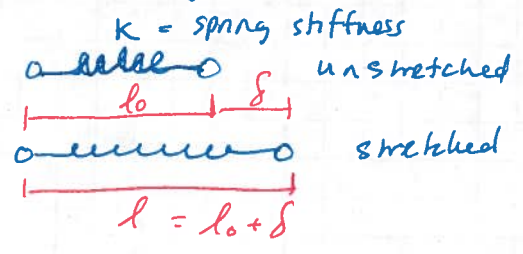 K = spring stiffness
unstretched
l₀ δ
stretched
l = l₀ + δ